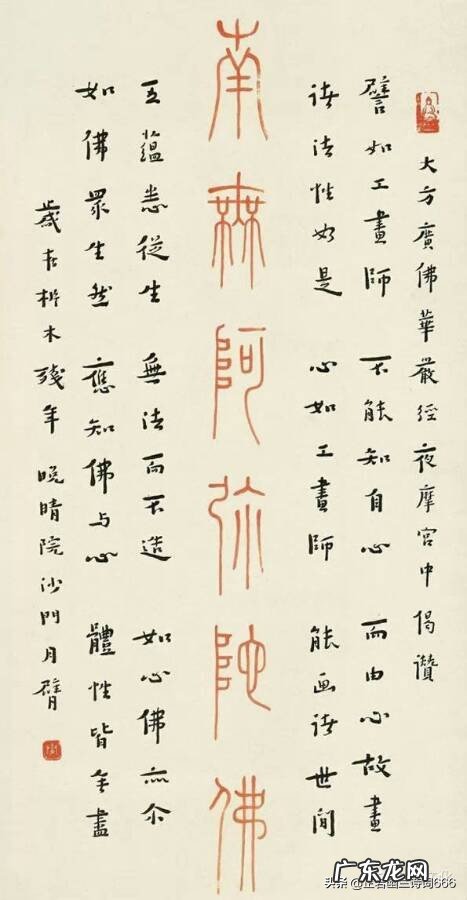 大方廣佛華嚴經夜摩宮中偈讚
譬如工畫師 不能知自心 而由心故畫
諸法性如是 心如工畫師 能画諸世間
南無阿弥陀佛
五蘊悉從生 無法而不造 如心佛亦尒
如佛眾生然 應知佛与心 體性皆無盡
歲在析木殘年 晚晴院沙門月臂
广东龙网
头条 诗词666